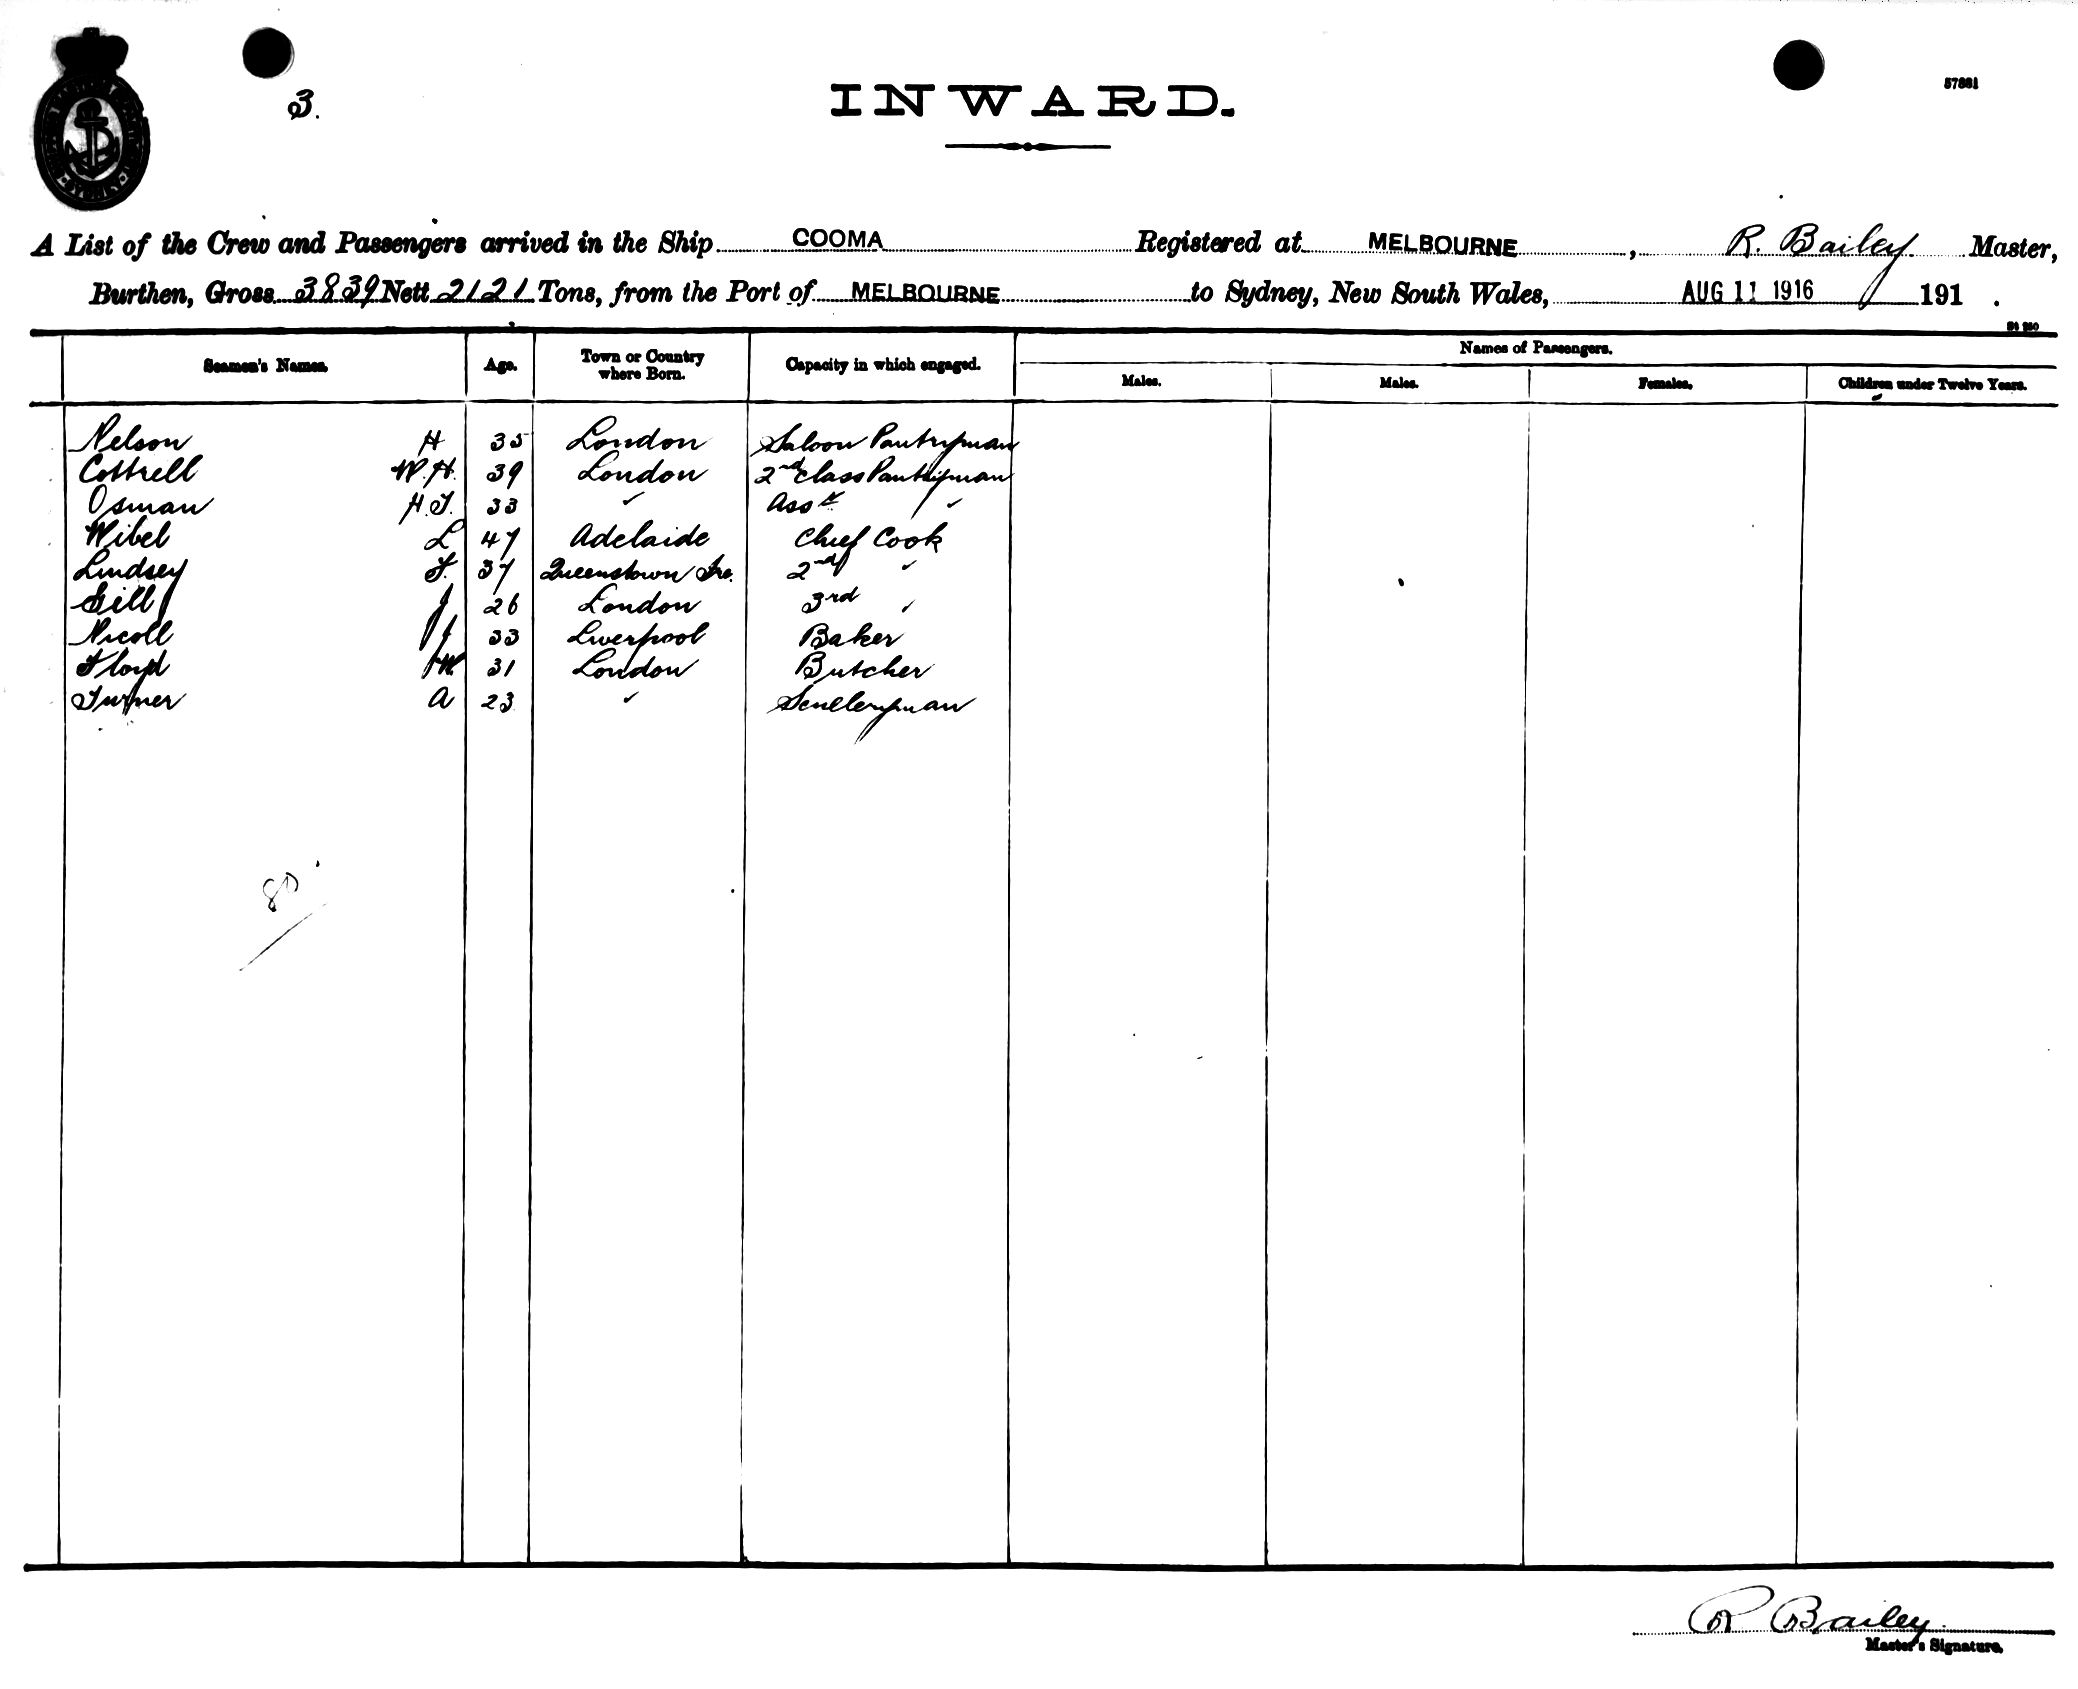 57881
3.
INWARD.
A List of the Crew and Passengers arrived in the Ship COOMA Registered at MELBOURNE, R. Bailey Master,
Burthen, Gross 3839 Nett 2121 Tons, from the Port of MELBOURNE to Sydney, New South Wales, AUG 11 1916 191 .
Seamen's Names. Age. Town or Country where Born. Capacity in which engaged. Names of Passengers.
Males. Males. Females. Children under Twelve Years.
Nelson H 35 London Saloon Pantryman
Cottrell W.H. 39 London 2nd Class Pantryman
Osman H.J. 33 " Asst "
Wibel L 47 Adelaide Chief Cook
Lindsey J. 37 Queenstown Ire. 2nd "
Gill J 26 London 3rd "
Nicoll J 33 Liverpool Baker
Floyd W 31 London Butcher
Turner A 23 " Sculleryman
80
R Bailey
Master's Signature.